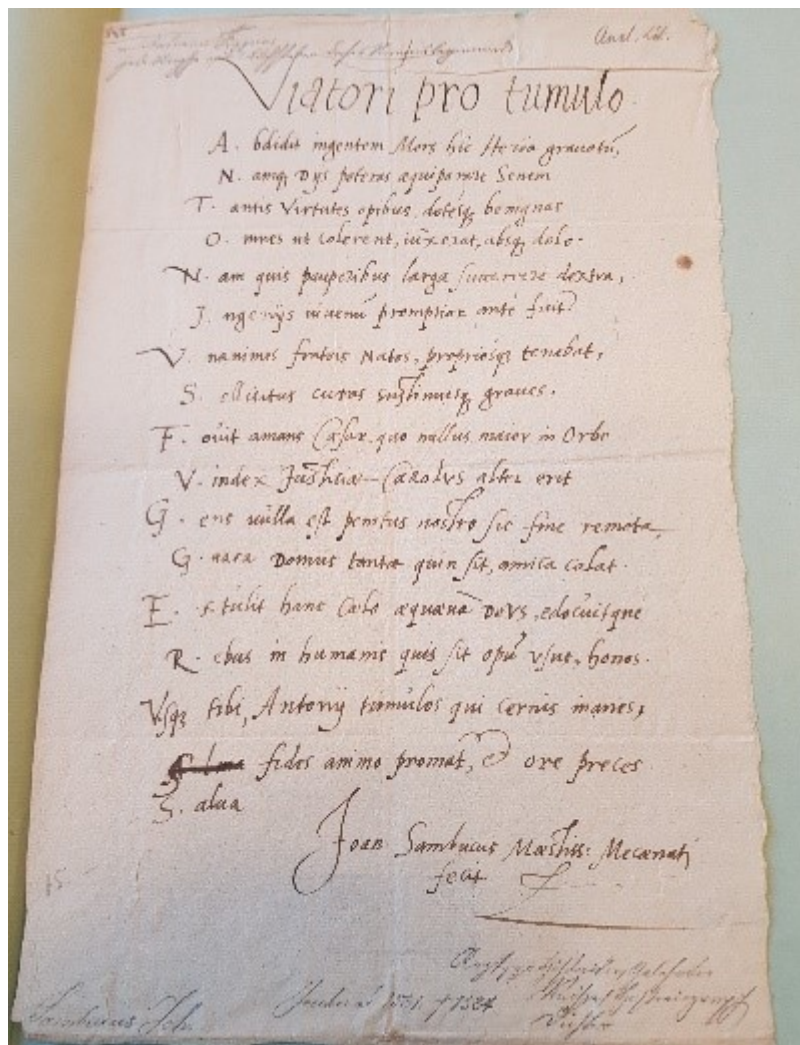 Anal. Lit.
Viatori pro tumulo.
A. bdidit ingentem Mors hic Heroa grauatū,
N. amq; Dijs poteras æquiparare Senem
T. antis Virtutes opibus, dotésq; benignas
O. mnes ut colerent, iūxerat, absq; dolo.
N. am quis pauperibus larga succurrere dextra,
I. ngenijs iuuenū promptior antè fuit?
V. nanimes fratris Natos, propriosq; tenebat,
S. ollicitus curas sustinuitq; graues.
F. ouit amans Cæsar, quo nullus maior in Orbe
V. index Justiciæ Carolvs alter erit
G. ens nulla est penitus nostro sic fine remota,
G. nara Domus tantæ quin sit, amica colat.
E. xtulit hanc Cælo æquanā Devs, edocuitque
R. ebus in humanis quis sit opū vsus, honos.
Vsq; tibi, Antonij tumulos qui cernis inanes,
fidos animo promat, & ore preces
S. alua
Joan Sambucus Mæstiss: Mecænati
fecit
Sambucus Joh. 1531 † 1584